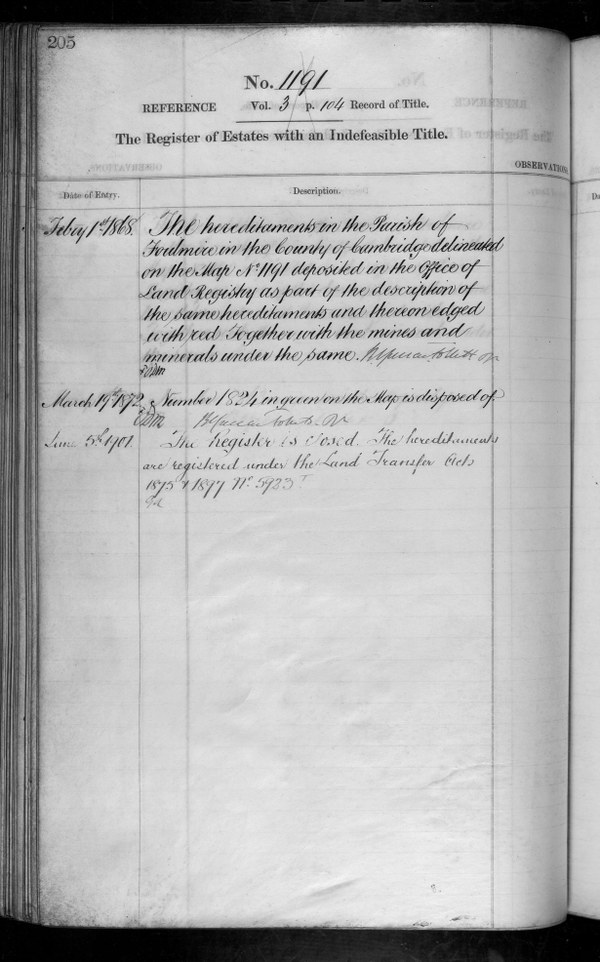 205
No. 1191
REFERENCE Vol. 3 p. 104 Record of Title.
The Register of Estates with an Indefeasible Title.
OBSERVATIONS
Date of Entry. Description.
Feby 1st 1868. The hereditaments in the Parish of
Foulmire in the County of Cambridge delineated
on the Map No 1191 deposited in the Office of
Land Registry as part of the description of
the same hereditaments and thereon edged
with red Together with the mines and
minerals under the same.
March 19th 1872 Number 1824 in green on the Map is disposed of.
June 5th 1901. The Register is closed. The hereditaments
are registered under the Land Transfer Acts
1875 & 1897 No 5983